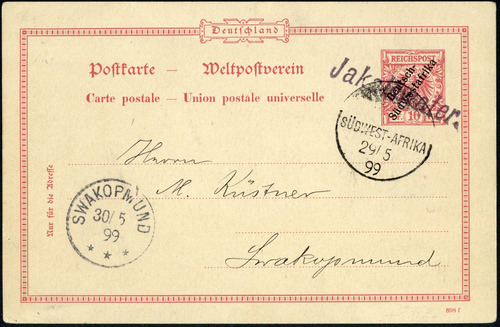 Deutschland
Postkarte — Weltpostverein
Carte postale — Union postale universelle
REICHSPOST
Deutsch-
Südwest-Afrika
10
SÜDWEST-AFRIKA
29/5
99
Nur für die Adresse
Herrn
M. Küstner
Swakopmund
SWAKOPMUND
30/5
99
* * *
898 f